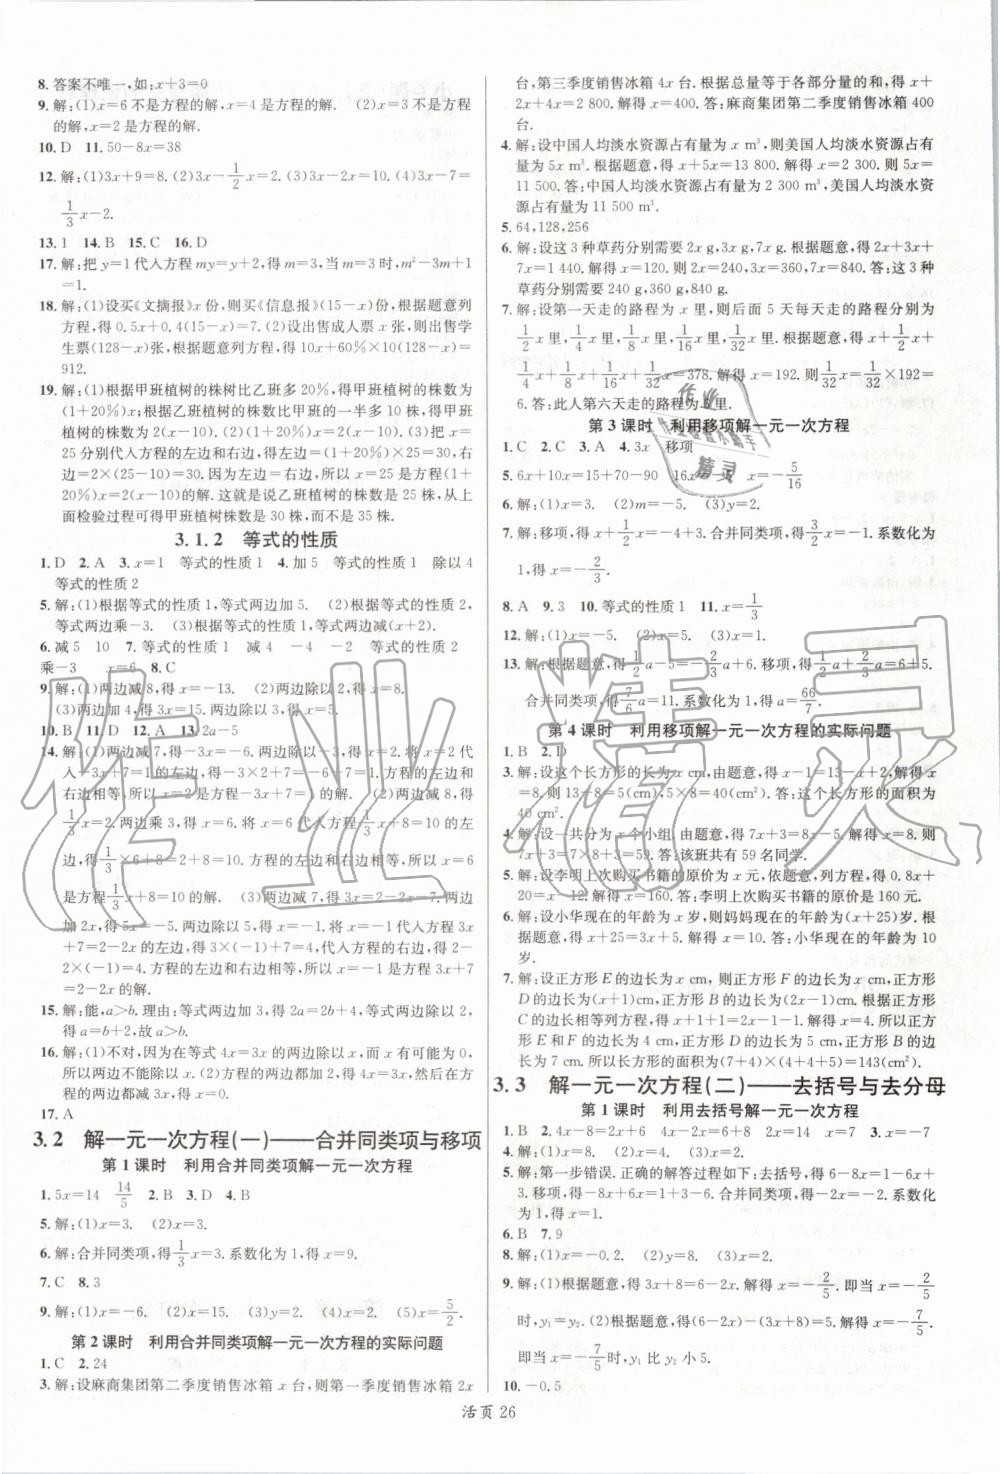 8. 答案不唯一,如:x+3=0
9. 解:(1)x=6不是方程的解. (2)x=3不是方程
的解,x=2是方程的解.
10. D 11. 50-8x=38
12. 解:(1)3x+9=8. (2)3x-1/2x=2. (3)3x-2x=10. (4)3x-7=
1/3x-2.
13. 1 14. B 15. C 16. D
17. 解:把y=1代入方程my=y+2,得m=3,当m=3时,m²-3m+1
=1.
18. 解:(1)设买《文摘报》x份,则买《信息报》(15-x)份,根据题意列
方程,得0.5x+0.4(15-x)=7. (2)设出售成人票x张,则出售学
生票(128-x)张,根据题意列方程,得10x+60%×10(128-x)=
912.
19. 解:(1)根据甲班植树的株树比乙班多20%,得甲班植树的株数为
(1+20%)x;根据乙班植树的株数比甲班的一半多10株,得甲班
植树的株数为2(x-10). (2)(1+20%)x=2(x-10). (3)把x=
25分别代入方程的左边和右边,得左边=(1+20%)×25=30,右
边=2×(25-10)=30. 因为左边=右边,所以x=25是方程(1+
20%)x=2(x-10)的解. 这就是说乙班植树的株数是25株,从上
面检验过程可得甲班植树株数是30株,而不是35株.
3.1.2 等式的性质
1. D 2. A 3. x=1 等式的性质1 4. 加5 等式的性质1 除以4
等式的性质2
5. 解:(1)根据等式的性质1,等式两边加5. (2)根据等式的性质2,
等式两边乘-3. (3)根据等式的性质1,等式两边减(x+2).
6. 减5 10 7. 等式的性质1 减4 -4 -2 等式的性质2
乘-3 x=6 8. C
9. 解:(1)两边减8,得x=-13. (2)两边除以2,得x=8.
(3)两边加4,得3x=15. 两边除以3,得x=5.
10. B 11. D 12. A 13. 2a-5
14. 解:(1)两边减7,得-3x=-6. 两边除以-3,得x=2. 将x=2代
入-3x+7=1的左边,得-3×2+7=-6+7=1. 方程的左边和
右边相等,所以x=2是方程-3x+7=1的解. (2)两边减8,得
1/3x=2. 两边乘3,得x=6. 将x=6代入方程1/3x+8=10的左
边,得1/3×6+8=2+8=10. 方程的左边和右边相等,所以x=6
是方程1/3x+8=10的解. (3)两边减7,得3x=2-2x-7. 两边
加2x,得5x=-5. 两边除以5,得x=-1. 将x=-1代入方程3x
+7=2-2x的左边,得-3×1+7=4,代入方程的右边,得2-
2×(-1)=4. 方程的左边和右边相等,所以x=-1是方程3x+7
=2-2x的解.
15. 解:能,a>b. 理由:等式两边加3,得2a=2b+4,等式两边除以2,
得a=b+2,故a>b.
16. 解:(1)不对,因为在等式4x=3x的两边除以x时,x可能为0,
所以两边不能除以x. (2)两边加2,得4x=3x. 两边减3x,得x
=0.
17. A
3.2 解一元一次方程(一)——合并同类项与移项
第1课时 利用合并同类项解一元一次方程
1. 5x=14 14/5 2. B 3. D 4. B
5. 解:(1)x=3. (2)x=3.
6. 解:合并同类项,得1/3x=3. 系数化为1,得x=9.
7. C 8. 3
9. 解:(1)x=-6. (2)x=15. (3)y=2. (4)x=2. (5)x=5/2.
第2课时 利用合并同类项解一元一次方程的实际问题
1. C 2. 24
3. 解:设麻商集团第二季度销售冰箱x台,则第一季度销售冰箱2x
台,第三季度销售冰箱4x台. 根据总量等于各部分量的和,得x+
2x+4x=2 800. 解得x=400. 答:麻商集团第二季度销售冰箱400
台.
4. 解:设中国人均淡水资源占有量为x m³,则美国人均淡水资源占有
量为5x m³. 根据题意,得x+5x=13 800. 解得x=2 300. 则5x=
11 500. 答:中国人均淡水资源占有量为2 300 m³,美国人均淡水资
源占有量为11 500 m³.
5. 64,128,256
6. 解:设这3种草药分别需要2x g,3x g,7x g. 根据题意,得2x+3x+
7x=1 440. 解得x=120. 则2x=240,3x=360,7x=840. 答:这3种
草药分别需要240 g,360 g,840 g.
7. 解:设第一天走的路程为x里,则后面5天每天走的路程分别为
1/2x里,1/4x里,1/8x里,1/16x里,1/32x里. 根据题意,得x+1/2x+
1/4x+1/8x+1/16x+1/32x=378. 解得x=192. 则1/32x=1/32×192=
6. 答:此人第六天走的路程为6里.
第3课时 利用移项解一元一次方程
1. C 2. C 3. A 4. 3x 移项
5. 6x+10x+15=70-90 16x -5/16
6. 解:(1)x=1. (2)m=2. (3)y=2.
7. 解:移项,得x+1/2x=-4+3. 合并同类项,得3/2x=-1. 系数化为
1,得x=-2/3.
8. A 9. 3 10. 等式的性质1 11. x=1/3
12. 解:(1)x=-5. (2)x=5. (3)x=4.
13. 解:根据题意,得1/2a-5=-2/3a+6. 移项,得1/2a+2/3a=6+5.
合并同类项,得7/6a=11. 系数化为1,得a=66/7.
第4课时 利用移项解一元一次方程的实际问题
1. B 2. D
3. 解:设这个长方形的长为x cm,由题意,得x-1=13-x+2,解得x
=8. 则13-8=5,5×8=40(cm²). 答:这个长方形的面积为
40 cm².
4. 解:设一共分为x个小组,由题意,得7x+3=8x-5. 解得x=8. 则
7x+3=7×8+3=59. 答:该班共有59名同学.
5. 解:设李明上次购买书籍的原价为x元,依题意,列方程,得0.8x+
20=x-12. 解得x=160. 答:李明上次购买书籍的原价是160元.
6. 解:设小华现在的年龄为x岁,则妈妈现在的年龄为(x+25)岁. 根
据题意,得x+25=3x+5. 解得x=10. 答:小华现在的年龄为10
岁.
7. 解:设正方形E的边长为x cm,则正方形F的边长为x cm,正方形
D的边长为(x+1)cm,正方形B的边长为(2x-1)cm. 根据正方形
C的边长相等列方程,得x+1+1=2x-1-1. 解得x=4. 所以正方
形E和F的边长为4 cm,正方形D的边长为5 cm,正方形B的边
长为7 cm. 所以长方形的面积为(7+4)×(4+4+5)=143(cm²).
3.3 解一元一次方程(二)——去括号与去分母
第1课时 利用去括号解一元一次方程
1. B 2. 4x-8=2x+6 4x-2x=6+8 2x=14 x=7 3. x=-7
4. B
5. 解:第一步错误. 正确的解答过程如下:去括号,得6-8x-6=1-6x+
3. 移项,得-8x+6x=1+3-6. 合并同类项,得-2x=-2. 系数化
为1,得x=1.
6. B 7. 9
8. 解:(1)x=-1. (2)x=0. (3)x=-1. (4)x=2.
9. 解:(1)根据题意,得3x+8=6-2x. 解得x=-2/5. 即当x=-2/5
时,y₁=y₂. (2)根据题意,得6-2x-(3x+8)=5. 解得x=-7/5.
即当x=-7/5时,y₁比y₂小5.
10. -0.5
活页 26
作业
精灵
作业精灵